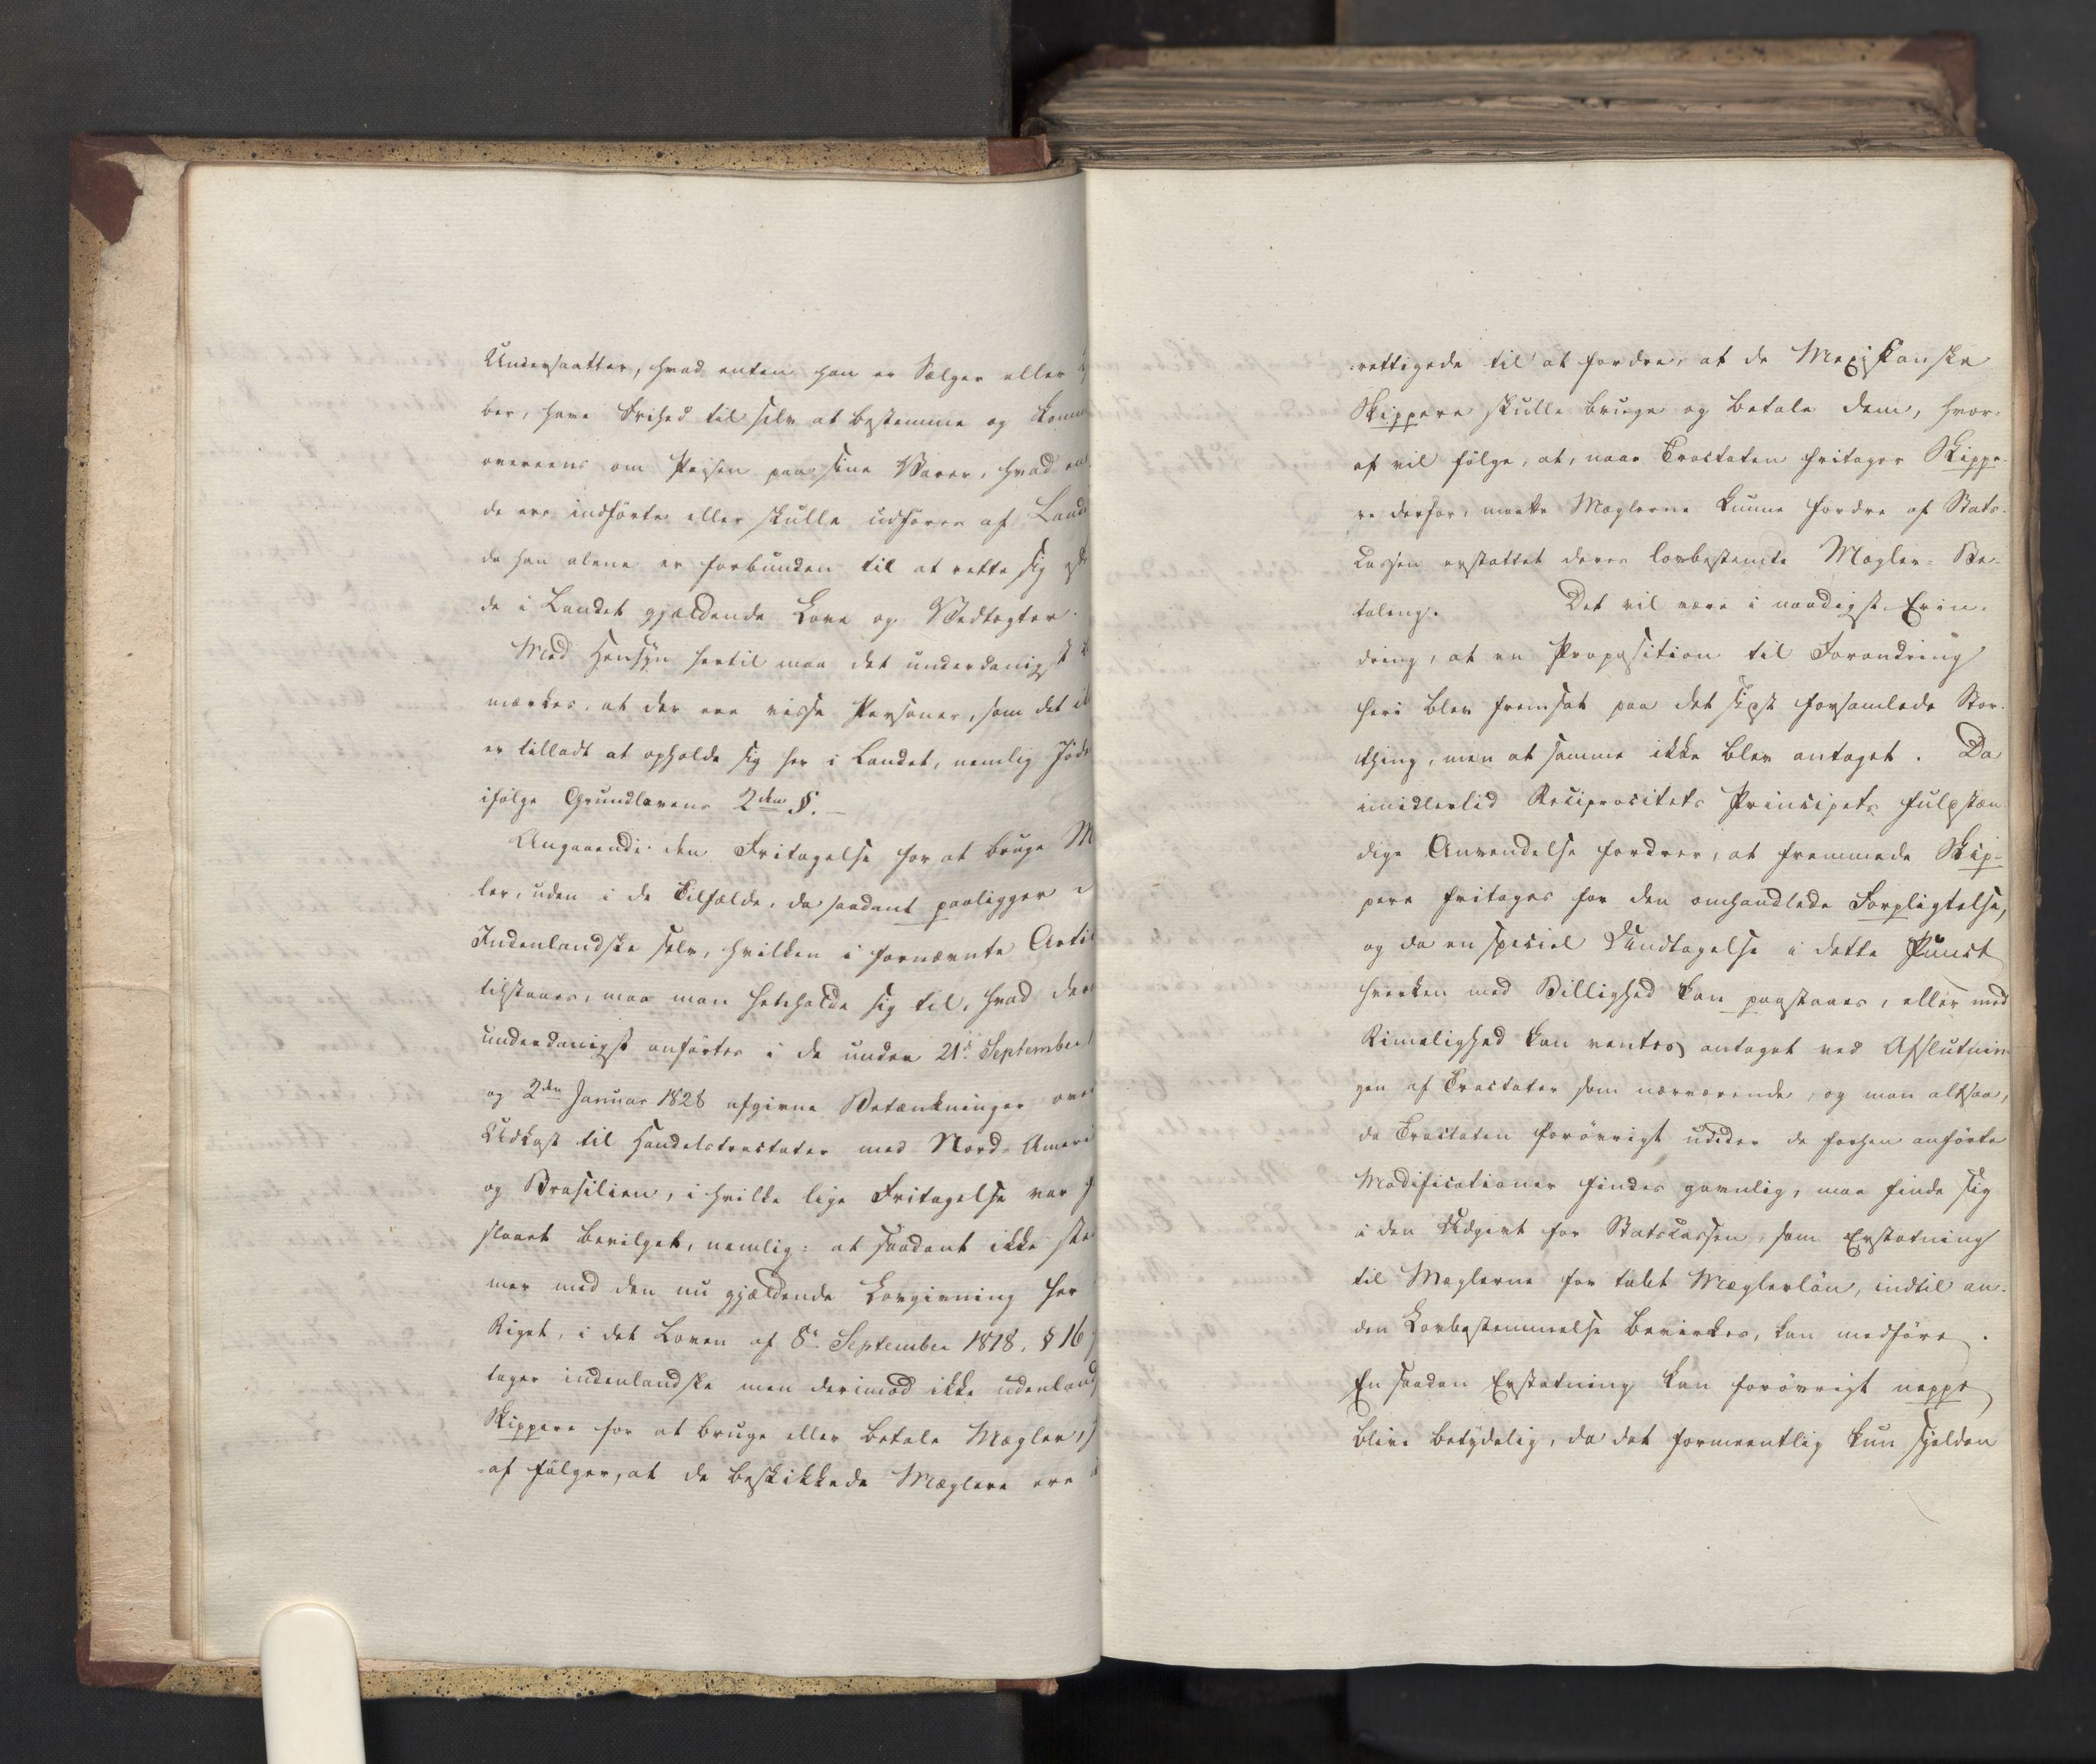 Undersaatter, hvad enten han er Sælger eller
ber, have Frihed til selv at bestemme og komme
overeens om Prisen paa sine Varer, hvad en
de ere indførte eller skulle udføres af Land
da han alene er forbunden til at rette sig ef
de i Landet gjældende Love og Vedtægter.
Med Hensyn hertil maa det underdanigst
mærkes, at der ere visse Personer, som det ik
er tilladt at opholde sig her i Landet, nemlig Jøde
ifølge Grundlovens 2den §. –
Angaaende den Fritagelse for at bruge M
ler, uden i de Tilfælde, da saadant paaligger
Indenlandske selv, hvilken i fornævnte Arti
tilstaaes, maa man henholde sig til, hvad der
underdanigst anførtes i de under 21de September
og 2den Januar 1828 afgivne Betænkninger over
Udkast til Handelstractater med Nord-Ameri
og Brasilien, i hvilke lige Fritagelse var
slaaet bevilget, nemlig: at saadant ikke ste
mer med den nu gjældende Lovgivning her
Riget, i det Loven af 8de September 1818, § 16
tager indenlandske men derimod ikke udenland
Skippere for at bruge eller betale Mægler,
af følger, at de beskikkede Mæglere ere
rettigede til at fordre, at de Mexikanske
Skippere skulle bruge og betale dem, hvor-
af vil følge, at, naar Tractaten fritager Skippe-
re derfor, maatte Mæglerne kunne fordre af Stats-
Cassen erstattet deres lovbestemte Mægler-Be-
taling. Det vil være i naadigst Erin-
dring, at en Proposition til Forandring
heri blev fremsat paa det sidst forsamlede Stor-
thing, men at samme ikke blev antaget. Da
imidlertid Reciprocitets Principets fuldstæn-
dige Anvendelse fordrer, at fremmede Skip-
pere fritages for den omhandlede Forpligtelse,
og da en speciel Undtagelse i dette Punct
hverken med Billighed kan paastaaes, eller med
Rimelighed kan ventes antaget ved Afslutnin-
gen af Tractater som nærværende, og man altsaa,
da Tractaten forøvrigt under de forhen anførte
Modificationer findes gavnlig, maa finde sig
i den Udgivt for Statscassen, som Erstatning
til Mæglerne for tabt Mæglerløn, indtil an-
den Lovbestemmelse bevirkes, kan medføre.
En saadan Erstatning kan forøvrigt neppe
blive betydelig, da det formeentlig kun sjelden